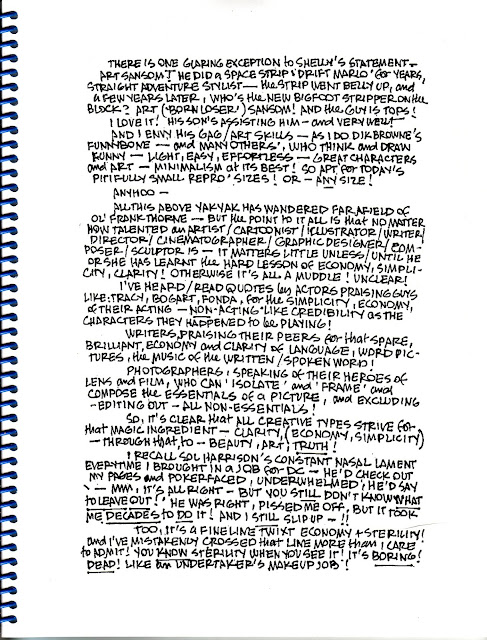 THERE IS ONE GLARING EXCEPTION to SHELLY'S STATEMENT —
ART SANSOM! HE DID A SPACE STRIP: 'DRIFT MARLO' for YEARS,
STRAIGHT ADVENTURE STYLIST — the STRIP WENT BELLY UP, and
A FEW YEARS LATER, WHO'S the NEW BIGFOOT STRIPPER ON the
BLOCK? ART, ('BORN LOSER') SANSOM! AND the GUY IS TOPS!
I LOVE IT! HIS SON'S ASSISTING HIM — and VERY WELL!
AND I ENVY HIS GAG/ART SKILLS — AS I DO DIK BROWNE'S
FUNNYBONE — and MANY OTHERS', WHO THINK and DRAW
FUNNY — LIGHT, EASY, EFFORTLESS — GREAT CHARACTERS
and ART — MINIMALISM at ITS BEST! SO APT for TODAY'S
PITIFULLY SMALL REPRO' SIZES! OR — ANY SIZE!
ANYHOO —
ALL THIS ABOVE YAKYAK HAS WANDERED FAR AFIELD OF
OL' FRANK THORNE — BUT the POINT TO IT ALL IS that NO MATTER
HOW TALENTED an ARTIST/CARTOONIST/ILLUSTRATOR/WRITER/
DIRECTOR/CINEMATOGRAPHER/GRAPHIC DESIGNER/COM-
POSER/SCULPTOR IS — IT MATTERS LITTLE UNLESS/UNTIL HE
OR SHE HAS LEARNT the HARD LESSON OF ECONOMY, SIMPLI-
CITY, CLARITY! OTHERWISE IT'S ALL A MUDDLE! UNCLEAR!
I'VE HEARD/READ QUOTES by ACTORS PRAISING GUYS
LIKE: TRACY, BOGART, FONDA, for the SIMPLICITY, ECONOMY,
OF THEIR ACTING — NON-ACTING-LIKE CREDIBILITY AS the
CHARACTERS THEY HAPPENED to be PLAYING!
WRITERS, PRAISING THEIR PEERS for that SPARE,
BRILLIANT, ECONOMY and CLARITY OF LANGUAGE, WORD PIC-
TURES, the MUSIC OF the WRITTEN/SPOKEN WORD!
PHOTOGRAPHERS: SPEAKING OF THEIR HEROES OF
LENS and FILM, WHO CAN 'ISOLATE' and 'FRAME' and
COMPOSE the ESSENTIALS OF A PICTURE, and EXCLUDING
-EDITING OUT — ALL NON-ESSENTIALS!
SO, IT'S CLEAR that ALL CREATIVE TYPES STRIVE for
that MAGIC INGREDIENT — CLARITY, (ECONOMY, SIMPLICITY)
— THROUGH that, to — BEAUTY, ART, TRUTH!
I RECALL SOL HARRISON'S CONSTANT NASAL LAMENT
EVERYTIME I BROUGHT IN a JOB for DC — HE'D CHECK OUT
MY PAGES and POKERFACED, UNDERWHELMED, HE'D SAY
'— MMM, IT'S ALL RIGHT — BUT YOU STILL DON'T KNOW WHAT
to LEAVE OUT!' HE WAS RIGHT, PISSED ME OFF, BUT IT TOOK
ME DECADES to DO IT! AND I STILL SLIP UP — !!
TOO, IT'S A FINE LINE TWIXT ECONOMY + STERILITY!
and I'VE MISTAKENLY CROSSED that LINE MORE than I CARE
to ADMIT! YOU KNOW STERILITY WHEN YOU SEE IT! IT'S BORING!
DEAD! LIKE an UNDERTAKER'S MAKEUP JOB!